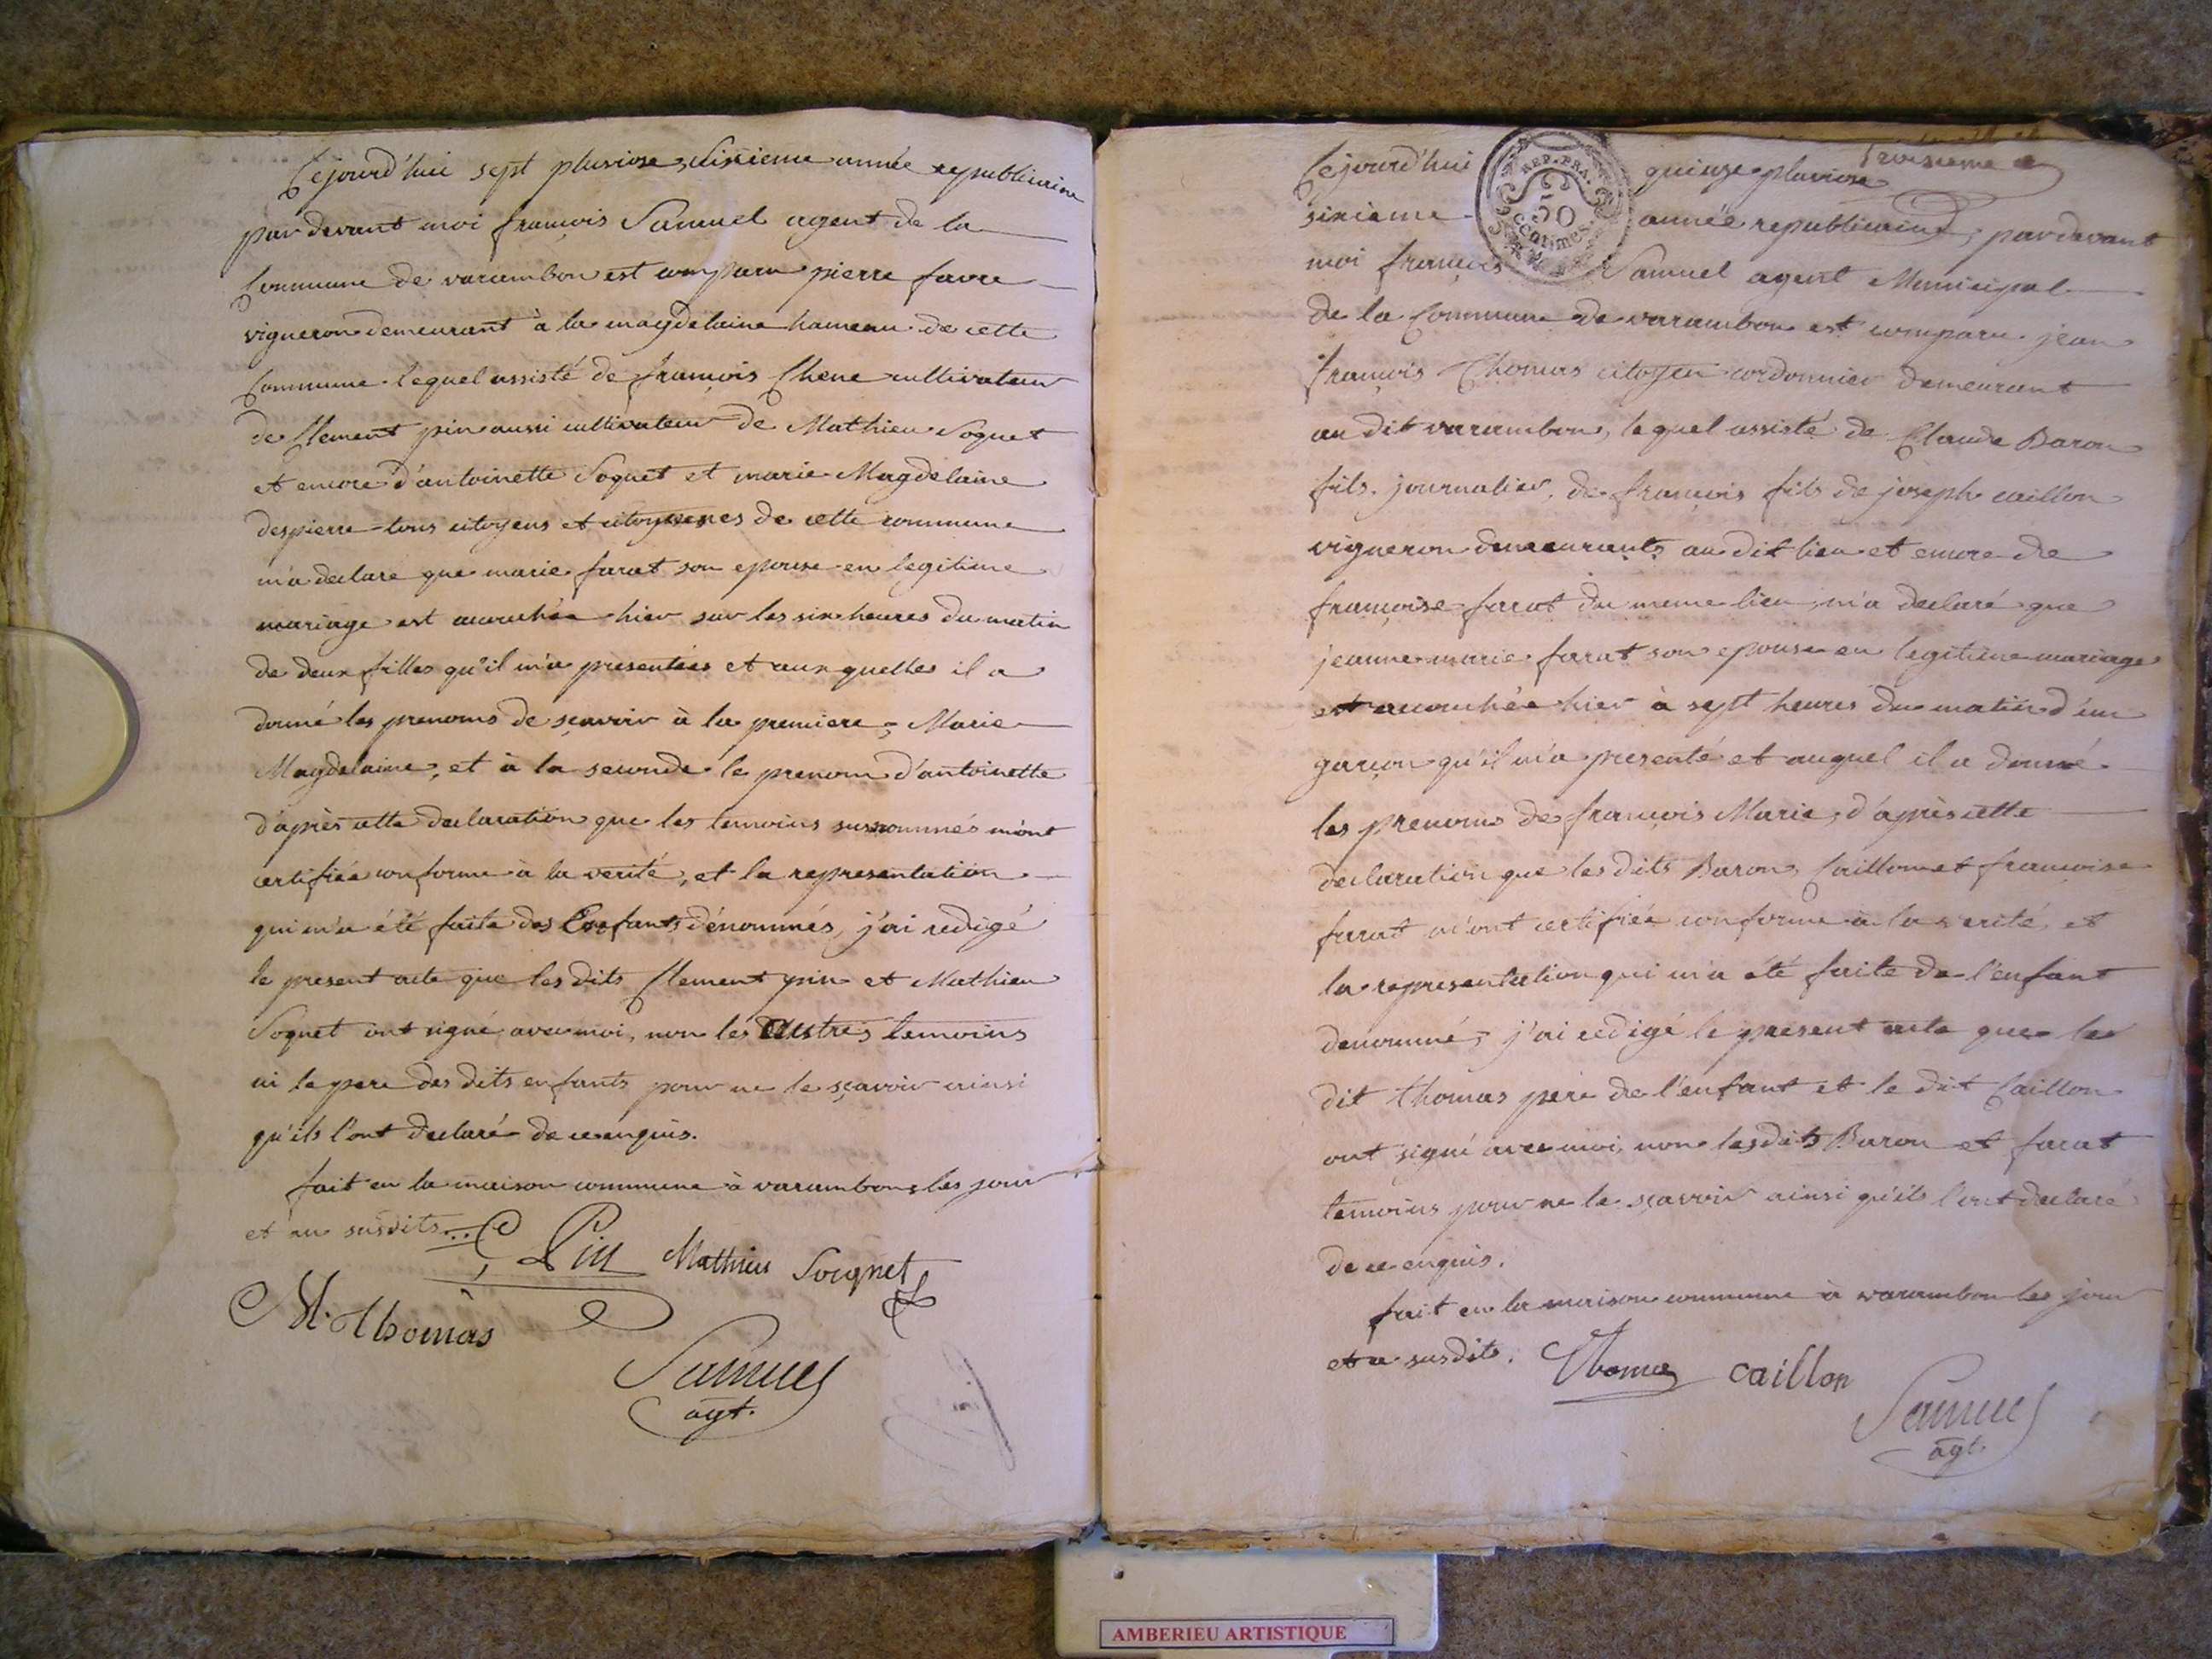 Cejourd'hui sept pluviose, sixieme année republicaine
par devant moi françois Samuel agent de la
Commune de varambon est comparu pierre favre
vigneron demeurant à la magdelaine hameau de cette
Commune lequel assisté de françois Chene cultivateur
de Clement pin aussi cultivateur de Mathieu Soquet
et encore d'antoinette Soquet et marie Magdelaine
despierre tous citoyens et citoyennes de cette commune
m'a declare que marie farat son epouse en legitime
mariage est accouchée hier sur les six heures du matin
de deux filles qu'il m'a presentées et aux quelles il a
donné les prenoms de sçavoir à la premiere, Marie
Magdelaine, et à la seconde le prenom d'antoinette
d'après cette declaration que les temoins susnommés m'ont
certifiée conforme à la verité, et la representation
qui m'a été faite des Enfants dénommés, j'ai redigé
le present acte que les dits Clement pin et Mathieu
Soquet ont signé avec moi, non les autres temoins
ni le pere des dits enfants pour ne le sçavoir ainsi
qu'ils l'ont declaré de ce enquis.
fait en la maison commune à varambon, les jour
et an susdits...
Pin Mathieu Soquet
M. Thomas
Samuel
agt.
troisieme
Cejourd'hui quinze pluviose
sixieme année republicaine, par devant
moi françois Samuel agent Municipal
de la Commune de varambon est comparu jean
françois Thomas citoyen cordonnier demeurant
au dit varambon, lequel assisté de Claude Baron
fils journalier, de françois fils de joseph caillon
vigneron demeurants au dit lieu et encore de
françoise farat du meme lieu, m'a declaré que
jeanne marie farat son epouse en legitime mariage
est accouchée hier à sept heures du matin d'un
garçon qu'il m'a presenté et auquel il a donné
les prenoms de françois Marie, d'après cette
declaration que les dits Baron, Caillon et francoise
farat m'ont certifiée conforme à la verité, et
la representation qui m'a été faite de l'enfant
denommé, j'ai redigé le present acte que le
dit thomas pere de l'enfant et le dit Caillon
ont signé avec moi, non les dits Baron et farat
temoins pour ne le sçavoir ainsi qu'ils l'ont declaré
de ce enquis.
fait en la maison commune à varambon les jour
et a susdits.
Thomas caillon
Samuel
agt.
REP. FRA.
50
Centimes
AMBERIEU ARTISTIQUE